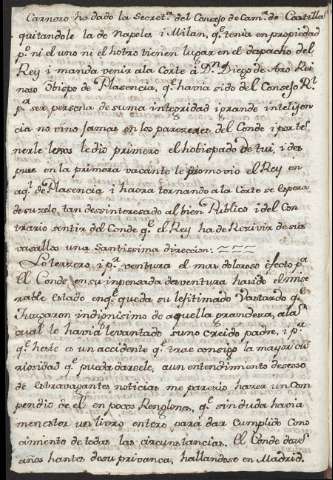 Carnero ha dado la Secret.ª del Consejo de Cam.ª de Castilla
quitandole la de Napoles i Milan, q.e tenia en propiedad
p.r ni el uno ni el hotro tienen lugar en el dapacho del
Rey i manda venir ala Corte à D.n Diego de Aro Rei
noso Obispo de Plasencia, q.e havia sido del Consejo R.l
p.r ser persona de suma integridad i grande inteligen
cia no vino jamas en los parezeres del Conde i por te
nerle lejos le dio primero el hobispado de tui, i des
pues en la primera vacante le promovio el Rey en
aq.l de Plasencia i haora tornando ala Corte se espera
de su zelo, tan desinteresado al bien Publico i del Con
trario sentir del Conde q.e el Rey ha de Recivir de sus
vasallos una Santissima direccion.
Lo terzero, i p.r ventura el mas doloroso efecto q.e
El Conde en su impensada desventura ha sido el mise
rable estado en q.e queda su lejitimado Bastardo q.e
Juzgaron indignisimo de aquella grandeza, ala
qual le havia levantado su no creido padre, i p.r
q.e heste es un accidente q.e trae consigo la mayor cu
riosidad q.e pueda darsele, a un entendimiento deseoso
de estravagantes noticias me parezio hazer un Com
pendio de el en pocos Renglones, q.e sin duda havia
menester un livro entero para dar cumplido Cono
cimiento de todas las circunstancias. El Conde
años hantes de su privanza, hallandose en Madrid